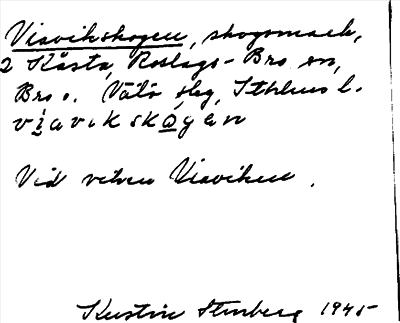 Viavikskogen, skogsmark,
2 Kåsta, Roslags-Bro sn,
Bro o. Vätö slg, Sthlms l.
viavikskogen
Vid viken Viaviken.
Kerstin Stenberg 1945